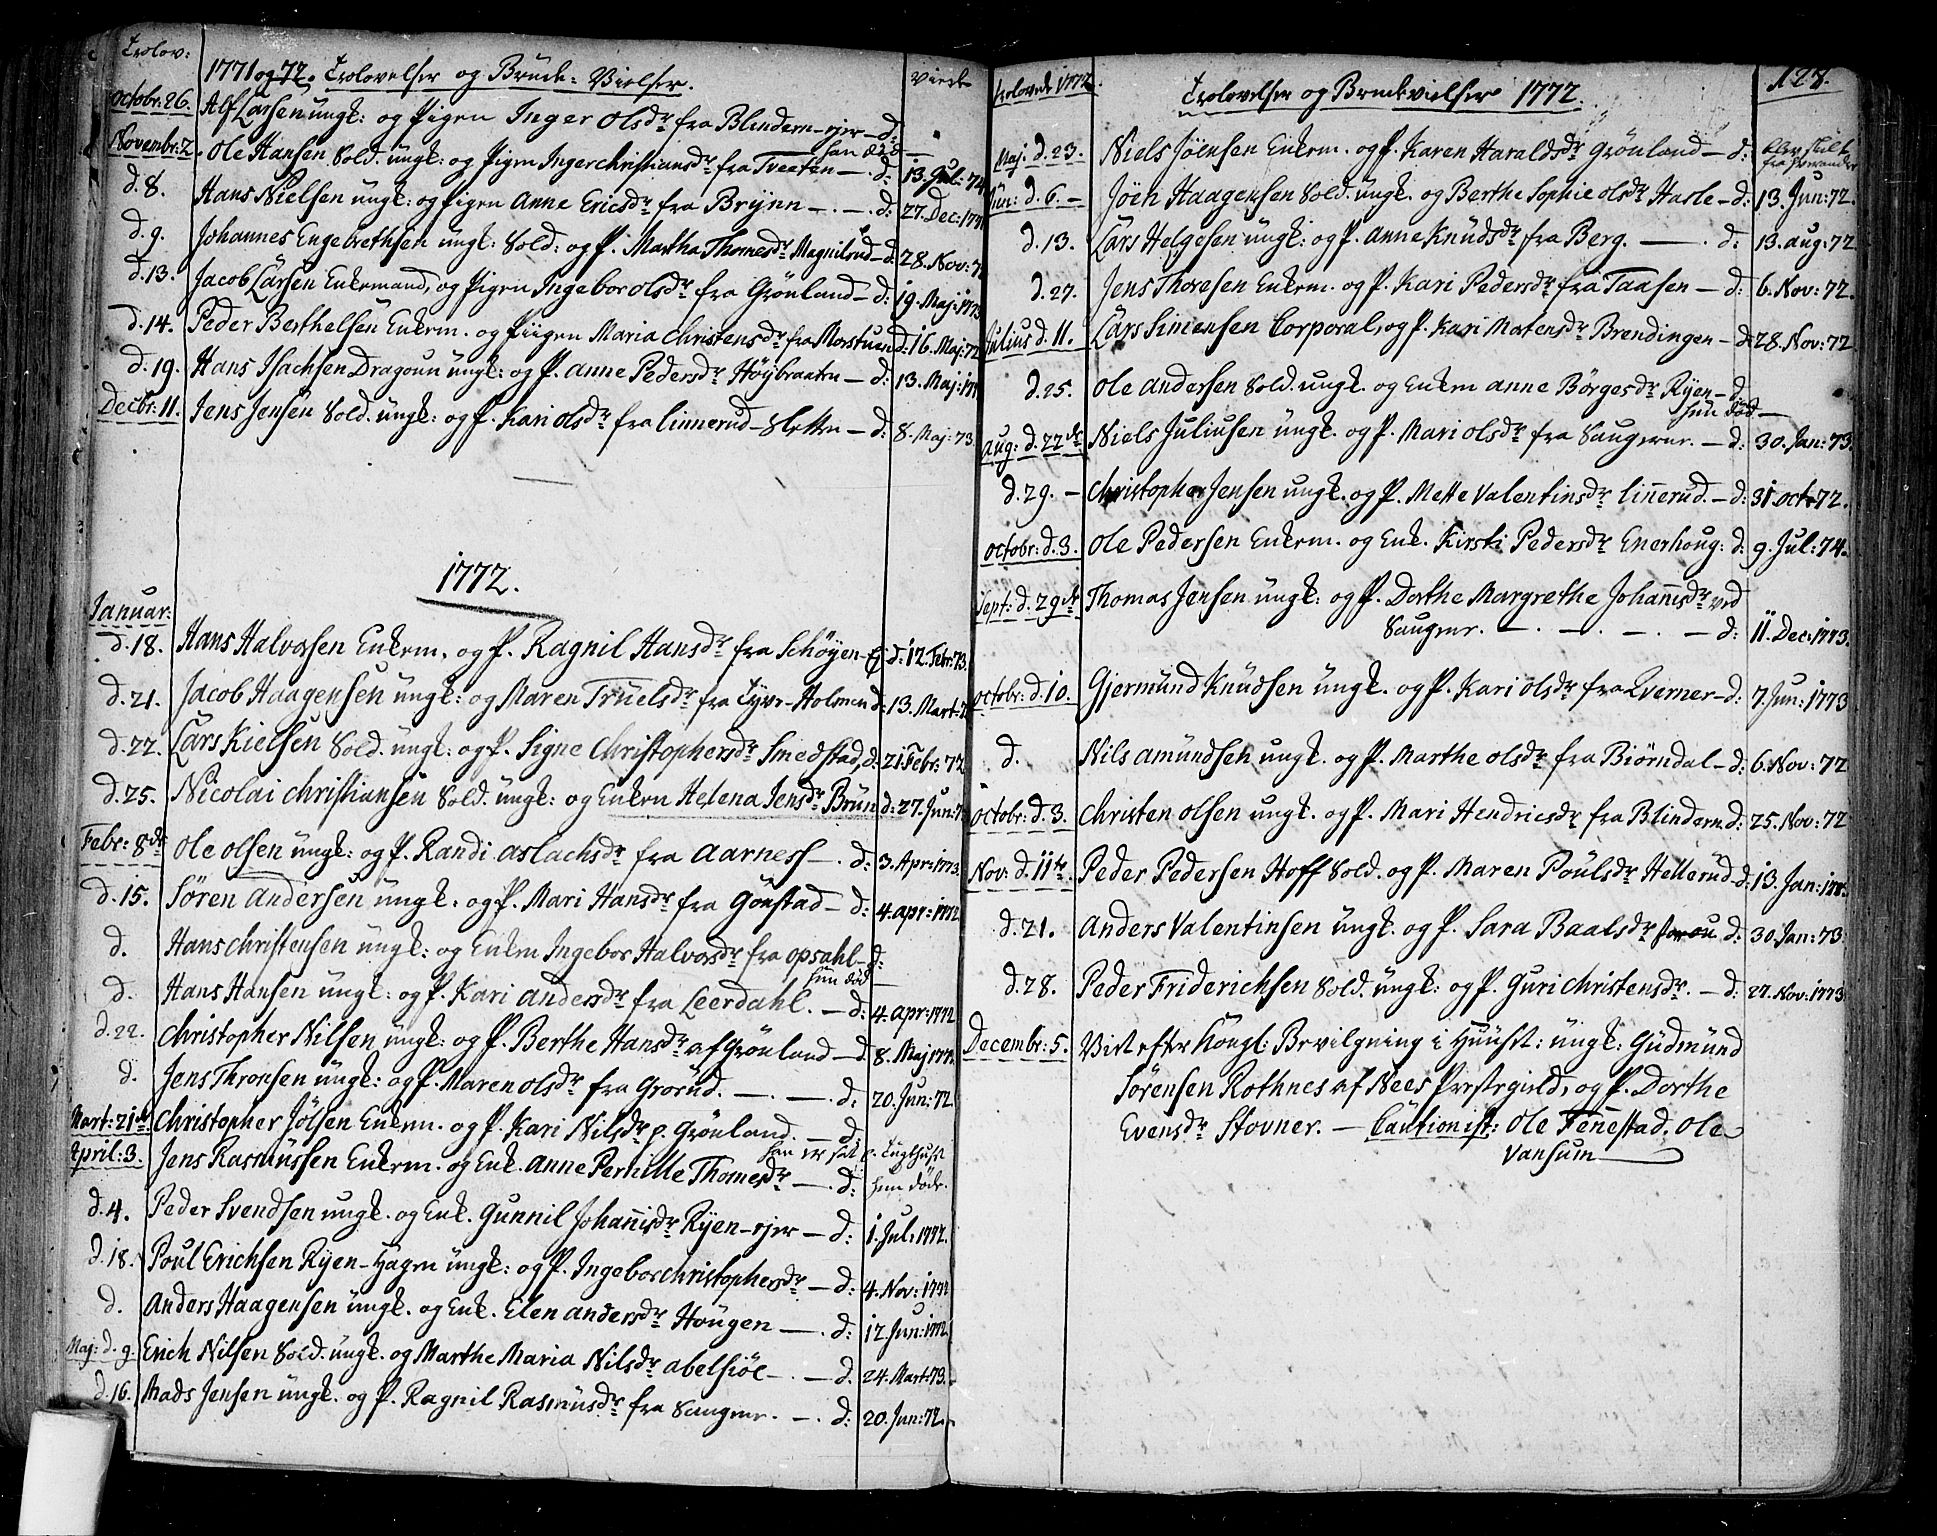 Trolov:
1771 og 72. Trolovelser og Brude-Vielser.
Viede
Octobr: 26. Alf Larsen ungk: og Pigen Inger Olsdr fra Blindern-ejer - d:
han död
Novembr: 2. Ole Hansen Sold. ungk: og Pigen Inger Christiansdr fra Tveeten - d: 13. Jul: 74
d. 8. Hans Nielsen ungk: og Pigen Anne Ericsdr fra Brÿnn - . - d: 27. Dec: 177
d. 9. Johannes Engebrethsen ungk: Sold: og P. Martha Thomesdr Magnilsrud - d: 28. Nov: 7
d. 13. Jacob Larsen Enkemand, og Pigen Ingebor Olsdr fra Grönland - d: 19. Maj: 1773
d. 14. Peder Berthelsen Enkem. og Piigen Maria Christensdr fra Morstuen d: 16. Maj: 72
d. 19. Hans Isachsen Dragoun ungk: og P. Anne Pedersdr Höÿbraaten - d: 13. Maj: 177
Decbr: 11. Jens Jensen Sold. ungk: og P. Kari Olsdr fra Linnerud-Sletten - d: 8. Maj: 73.
1772.
Januar:
d. 18. Hans Halvorsen Enkem. og P. Ragnil Hansdr fra Schöyen-Ej d: 12. Febr: 73.
d. 21. Jacob Haagensen ungk: og Maren Truelsdr fra Tyve-Holmen d: 13. Mart: 7
d. 22. Lars Kielsen Sold. ungk: og P. Signe Christophersdr Smedstad, d: 21 Febr: 72
d. 25. Nicolai Christiansen Sold. ungk: og Enken Helena Jensdr Brün d: 27. Jun: 7
Febr: 8de Ole Olsen ungk: og P. Randi Aslachsdr fra Aarness - . d: 3. Apr: 1773.
d. 15. Sören Andersen ungk: og P. Mari Hansdr fra Gonstad - d: 4. Apr: 1772
d. Hans Christensen ungk: og Enken Ingebor Halvorsdr fra Opsahl - d:
hun död
d. Hans Hansen ungk: og P. Kari Andersdr fra Leerdahl. - d: 4. Apr: 1772
d. 22. Christopher Nilsen ungk: og P. Berthe Hansdr af Grönland - d. 8. Maj 177
d. Jens Thronsen ungk: og P. Maren Olsdr fra Grorud. - . - d: 20. Jun: 72.
Mart: 21de Christopher Jölsen Enkem. og P. Kari Nilsdr p. Grönland. - d.
han er sat i Tugthust
April: 3. Jens Rasmussen Enkem. og Enk. Anne Pernille Thomesdr - . d: hun döde.
d. 4. Peder Svendsen ungk. og Enk. Gunnil Johannisdr Rÿen-ejer - d: 1. Jul: 1772.
d. 18. Poul Erichsen Rÿen-Hagen ungk: og P. Ingebor Christophersdr - d: 4. Nov: 1772
d. Anders Haagensen ungk. og Enk. Elen Andersdr Hougen - . d: 12. Jun: 1772
Maj: d. 9. Erich Nilsen Sold. ungk. og Marthe Maria Nilsdr Abelsiöe - . - d. 24. Mart: 73.
d. 16. Mads Jensen ungk. og P. Ragnil Rasmusdr fra Saugene. - . d: 20. Jun: 72.
Trolovede 1772.
Trolovelser og Brudevielser 1772.
128.
Maj: d. 23. Niels Jöensen Enkem. og P. Karen Haraldsdr Grönland - d: blev skilt
fra hverander
Jun: d. 6. - Jöen Haagensen Sold. ungk. og Berthe Sophie Olsdr Hasle - d: 13. Jun: 72.
d. 13. Lars Helgesen ungk: og P. Anne Knudsdr fra Berg. - . d: 13. Aug: 72
d. 27. Jens Thoresen Enkem. og P. Kari Pedersdr fra Taasen - d: 6. Nov: 72.
Julius d. 11. Lars Simensen Corporal, og P. Kari Mortensdr Brendingen - d: 28. Nov: 72.
d. 25. Ole Andersen Sold. ungk. og Enken Anne Börgesdr Rÿen - d.
hun död -
Aug: d. 22de Niels Juliusen ungk. og P. Mari Olsdr fra Saugerne. - d: 30. Jan: 73.
d. 29. - Christopher Jensen ungk. og P. Mette Valentinsdr Linnerud. - d: 31. Oct: 72.
Octobr: d. 3. Ole Pedersen Enkem. og Enk. Kirsti Pedersdr Enerhoug: d: 9. Jul: 74.
Sept: d. 29de Thomas Jensen ungk: og P. Dorthe Margrethe Johannisdr ved
Saugene. - . - . - . - d: 11. Dec: 1773.
Octobr: d. 10. Gjermund Knudsen ungk. og P. Kari Olsdr fra Qverner - d: 7. Jun: 1773
d. Nils Amundsen ungk. og P. Marthe Olsdr fra Biörndal - d: 6. Nov: 72
Octobr: d. 3. Christen Olsen ungk. og P. Mari Hendricsdr fra Blindern d: 25. Nov: 72
Nov: d. 11te Peder Pedersen Hoff Sold. og P. Maren Poulsdr Hellerud d: 13. Jan: 177
d. 21. Anders Valentinsen ungk. og P. Sara Baalsdr d: 30. Jan: 73.
d. 28. Peder Friderichsen Sold. ungk: og P. Guri Christensdr. - d: 27. Nov: 1773
Decembr: 5. Viet efter Kongl: Bevilgning i Huuset: ungk: Gudmund
Sörensen Rothnes af Nees Prestegield, og P. Dorthe
Evensdr Stovner. - Cautionist: Ole Tenestad. Ole
Vansum